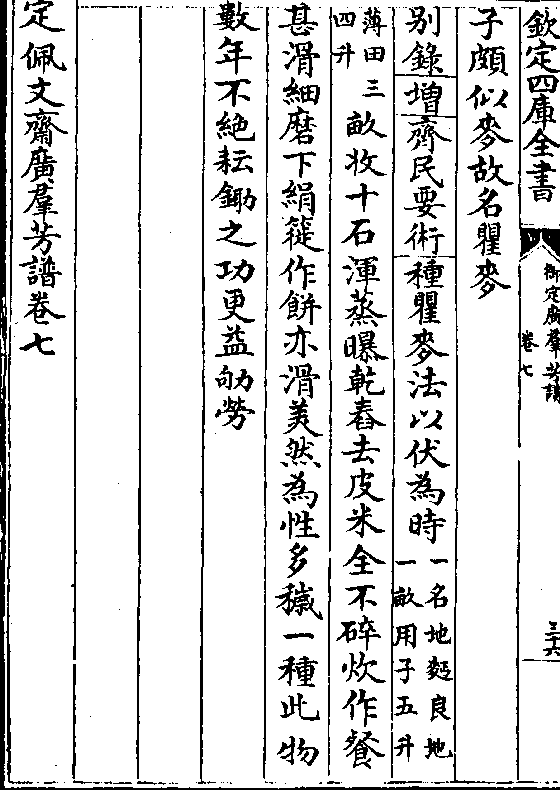 欽定四庫全書
御定廣羣芳譜
卷七
三十六
子頗似麥故名瞿麥
别錄增齊民要術種瞿麥法以伏為時一名地麪良地
一畝用子五升
薄田
四升三畝收十石渾蒸曝乾舂去皮米全不碎炊作飱
甚滑細磨下絹簁作餅亦滑美然為性多穢一種此物
數年不絕耘鋤之功更益劬勞
定佩文齋廣羣芳譜卷七